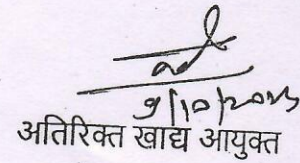 9/10/2023
अतिरिक्त खाद्य आयुक्त